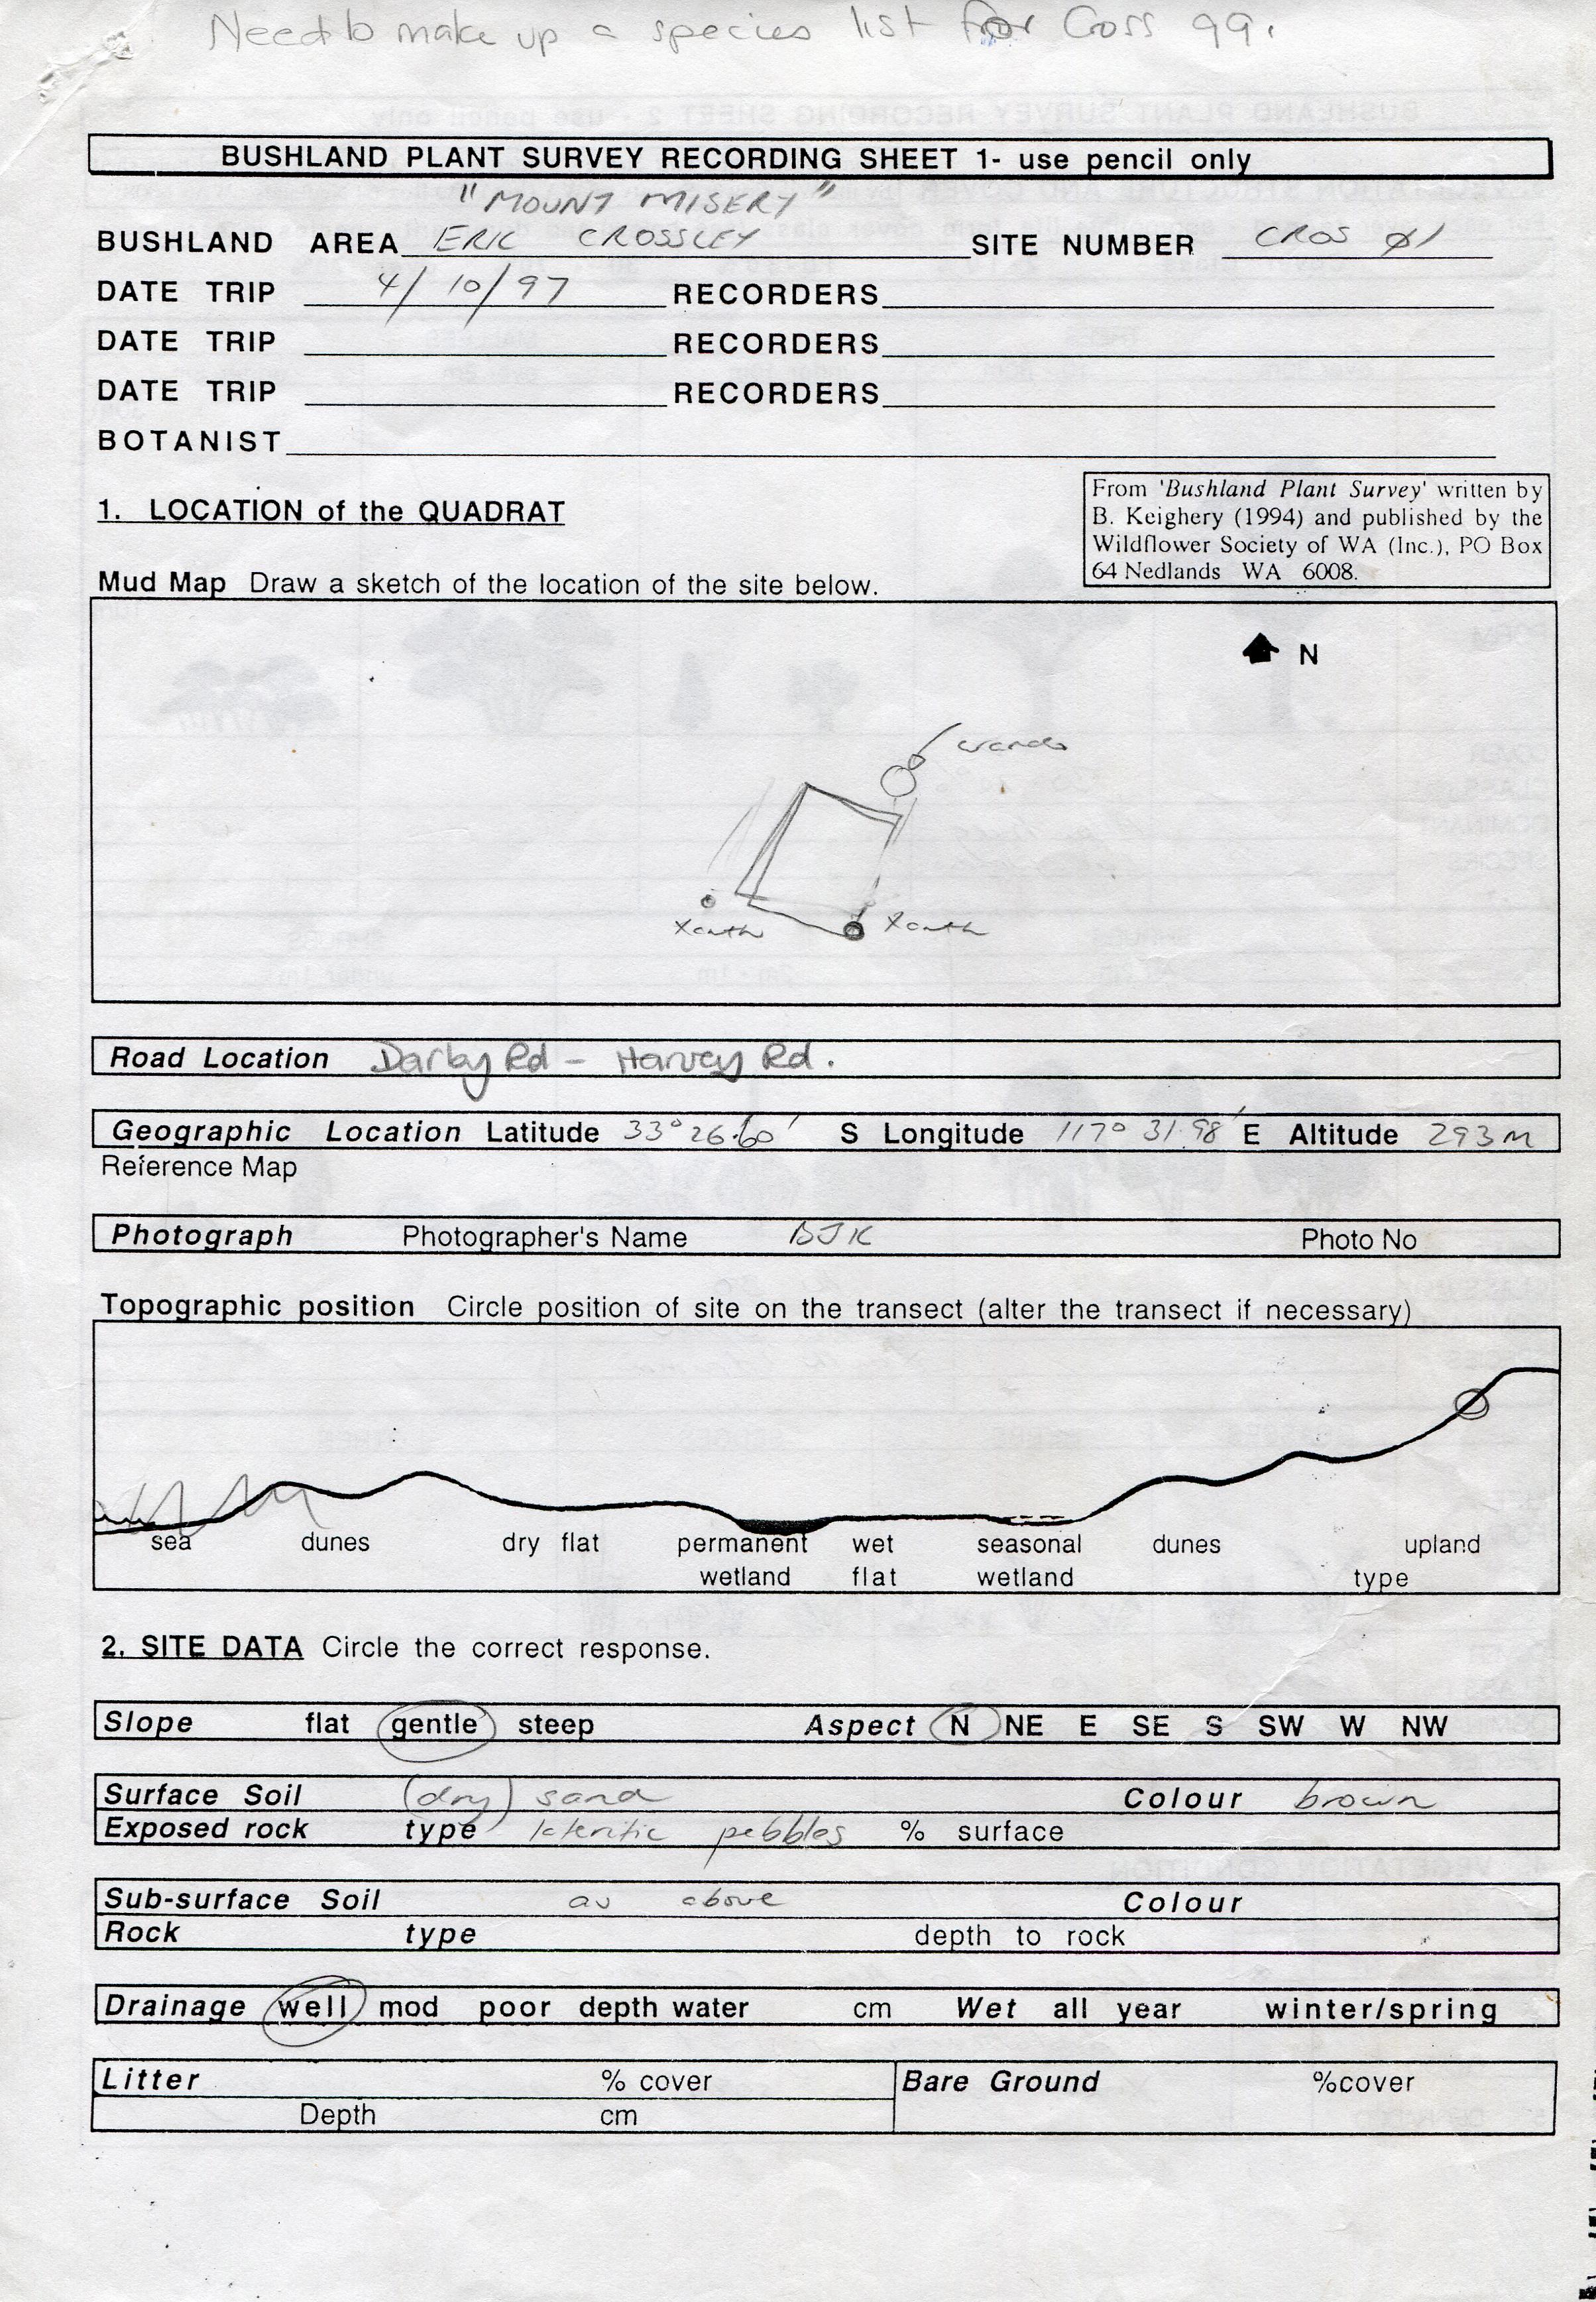 Need to make up a species list for Cross 99.
BUSHLAND PLANT SURVEY RECORDING SHEET 1- use pencil only
"MOUNT MISERY"
BUSHLAND AREA ERIC CROSSLEY SITE NUMBER CROS Ø1
DATE TRIP 4/10/97 RECORDERS
DATE TRIP RECORDERS
DATE TRIP RECORDERS
BOTANIST
1. LOCATION of the QUADRAT
From 'Bushland Plant Survey' written by
B. Keighery (1994) and published by the
Wildflower Society of WA (Inc.), PO Box
64 Nedlands WA 6008.
Mud Map Draw a sketch of the location of the site below.
N
wandoo
Xanth Xanth
Road Location Darby Rd - Harvey Rd.
Geographic Location Latitude 33° 26.60' S Longitude 117° 31.98' E Altitude 293m
Reference Map
Photograph Photographer's Name BJK Photo No
Topographic position Circle position of site on the transect (alter the transect if necessary)
sea dunes dry flat permanent wet seasonal dunes upland
wetland flat wetland type
2. SITE DATA Circle the correct response.
Slope flat gentle steep Aspect N NE E SE S SW W NW
Surface Soil (dry) sand Colour brown
Exposed rock type lateritic pebbles % surface
Sub-surface Soil as above Colour
Rock type depth to rock
Drainage well mod poor depth water cm Wet all year winter/spring
Litter % cover Bare Ground %cover
Depth cm